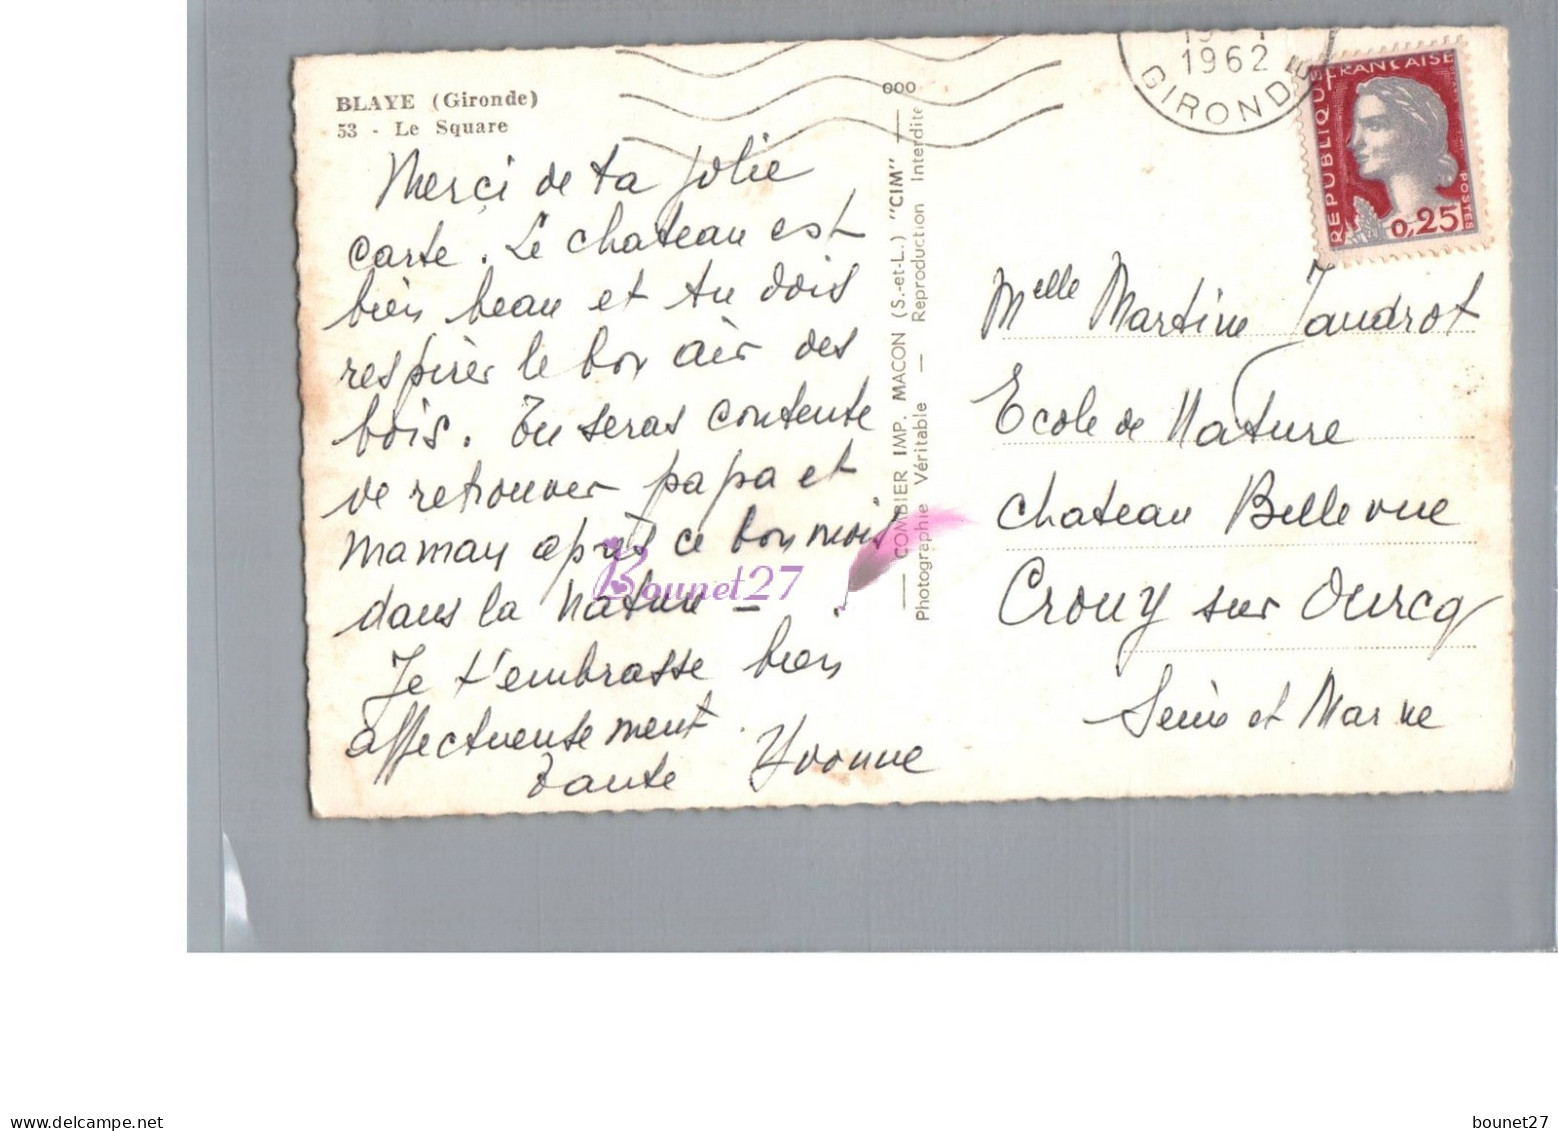 BLAYE (Gironde)
53 - Le Square
Merci de ta jolie
carte. Le chateau est
bien beau et tu dois
respirer le bon air des
bois. Tu seras contente
de retrouver papa et
maman après ce bon mois
dans la nature -
Je t'embrasse bien
affectueusement.
Tante Yvonne
COMBIER IMP. MACON (S.-et-L.) "CIM"
Photographie Véritable — Reproduction Interdite
1962
GIRONDE
REPUBLIQUE FRANCAISE
POSTES
0,25
Melle Martine Jaudrot
Ecole de Nature
Chateau Bellevue
Crouy sur Ourcq
Seine et Marne
Bounet27
delcampe.net
bounet27